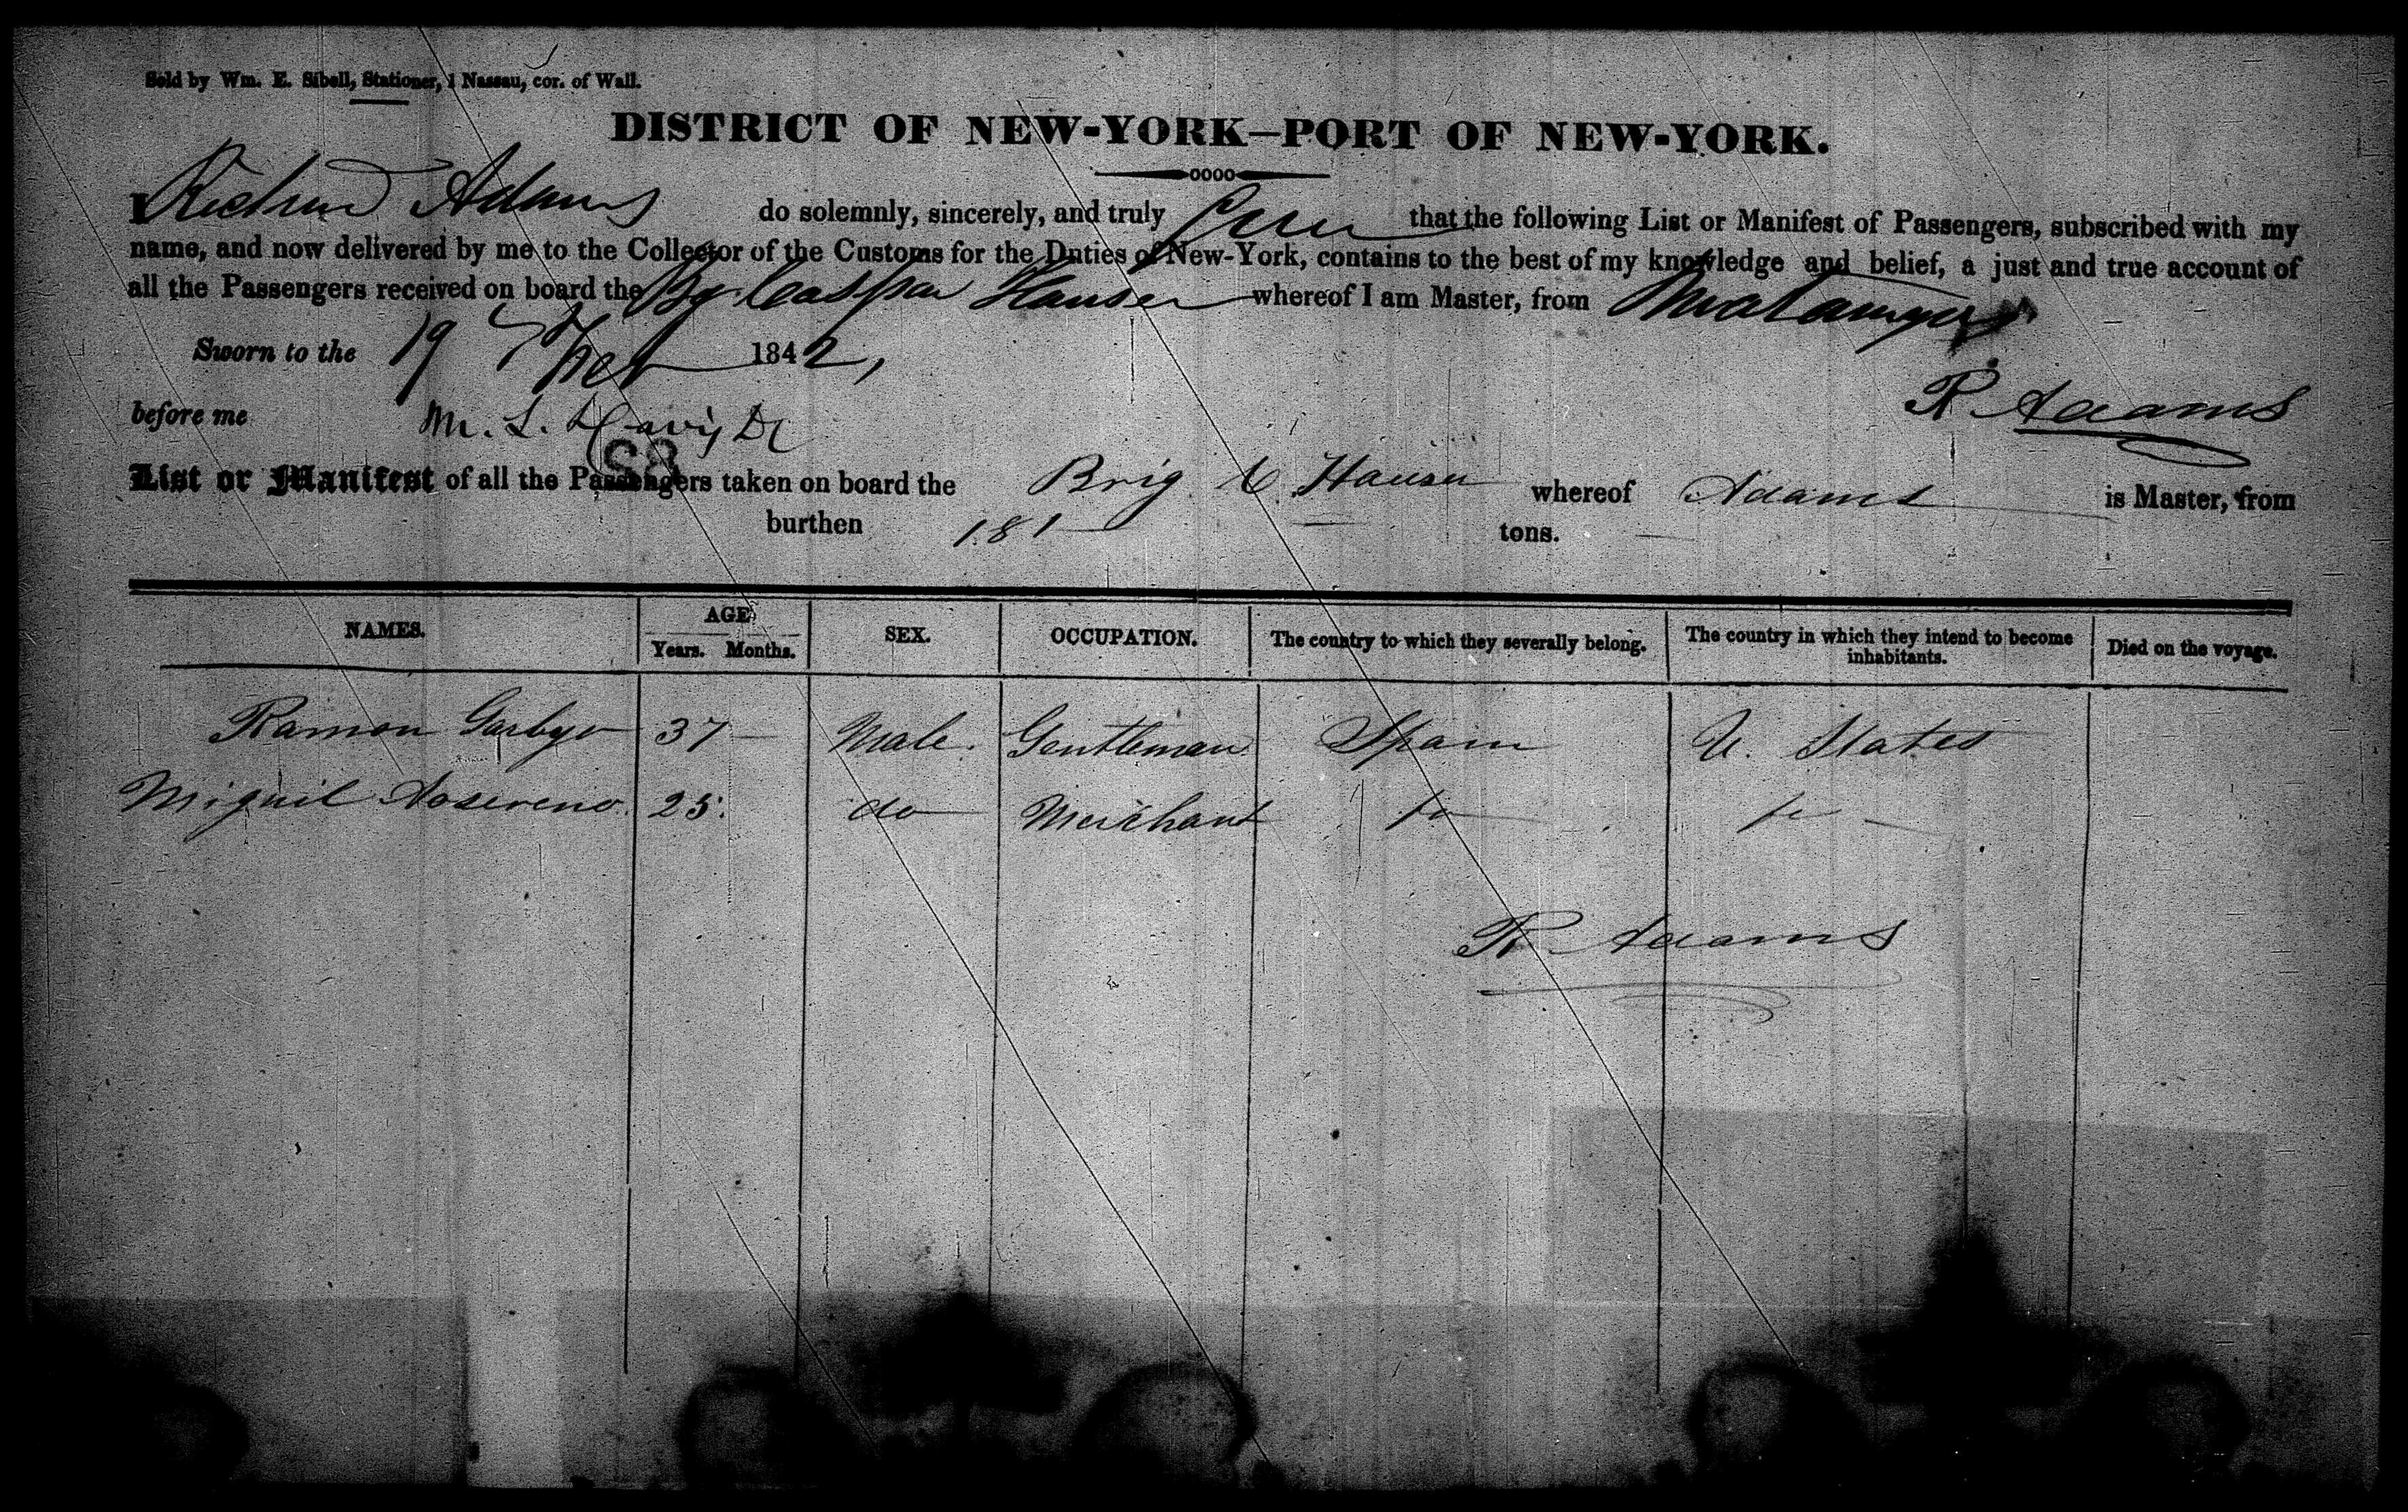 Sold by Wm. E. Sibell, Stationer, 1 Nassau, cor. of Wall.
DISTRICT OF NEW-YORK—PORT OF NEW-YORK.
I Richard Adams do solemnly, sincerely, and truly that the following List or Manifest of Passengers, subscribed with my
name, and now delivered by me to the Collector of the Customs for the Duties of New-York, contains to the best of my knowledge and belief, a just and true account of
all the Passengers received on board the Bg. Caspar Hauser whereof I am Master, from Matanzas
Sworn to the 19 Feb 1842,
R. Adams
before me M. L. Davis
88
List or Manifest of all the Passengers taken on board the Brig C. Hauser whereof Adams is Master, from
burthen 181 tons.
NAMES. AGE. Years. Months. SEX. OCCUPATION. The country to which they severally belong. The country in which they intend to become inhabitants. Died on the voyage.
Ramon 37 Male. Gentleman Spain U. States
Miguil 25. do Merchant do do
R Adams